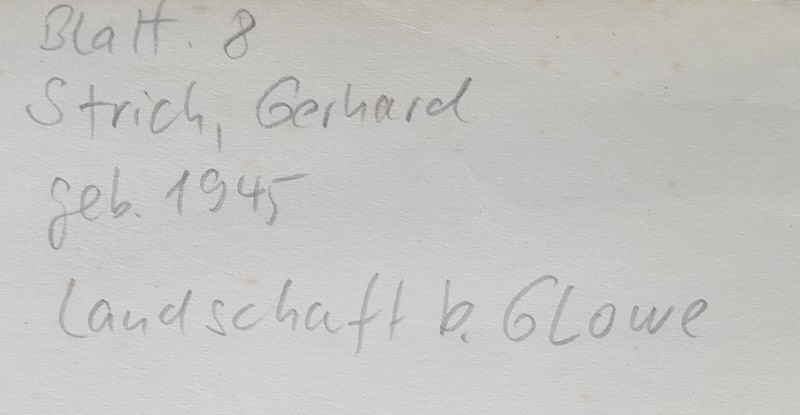 Blatt. 8
Strich, Gerhard
geb. 1945
Landschaft b. Glowe